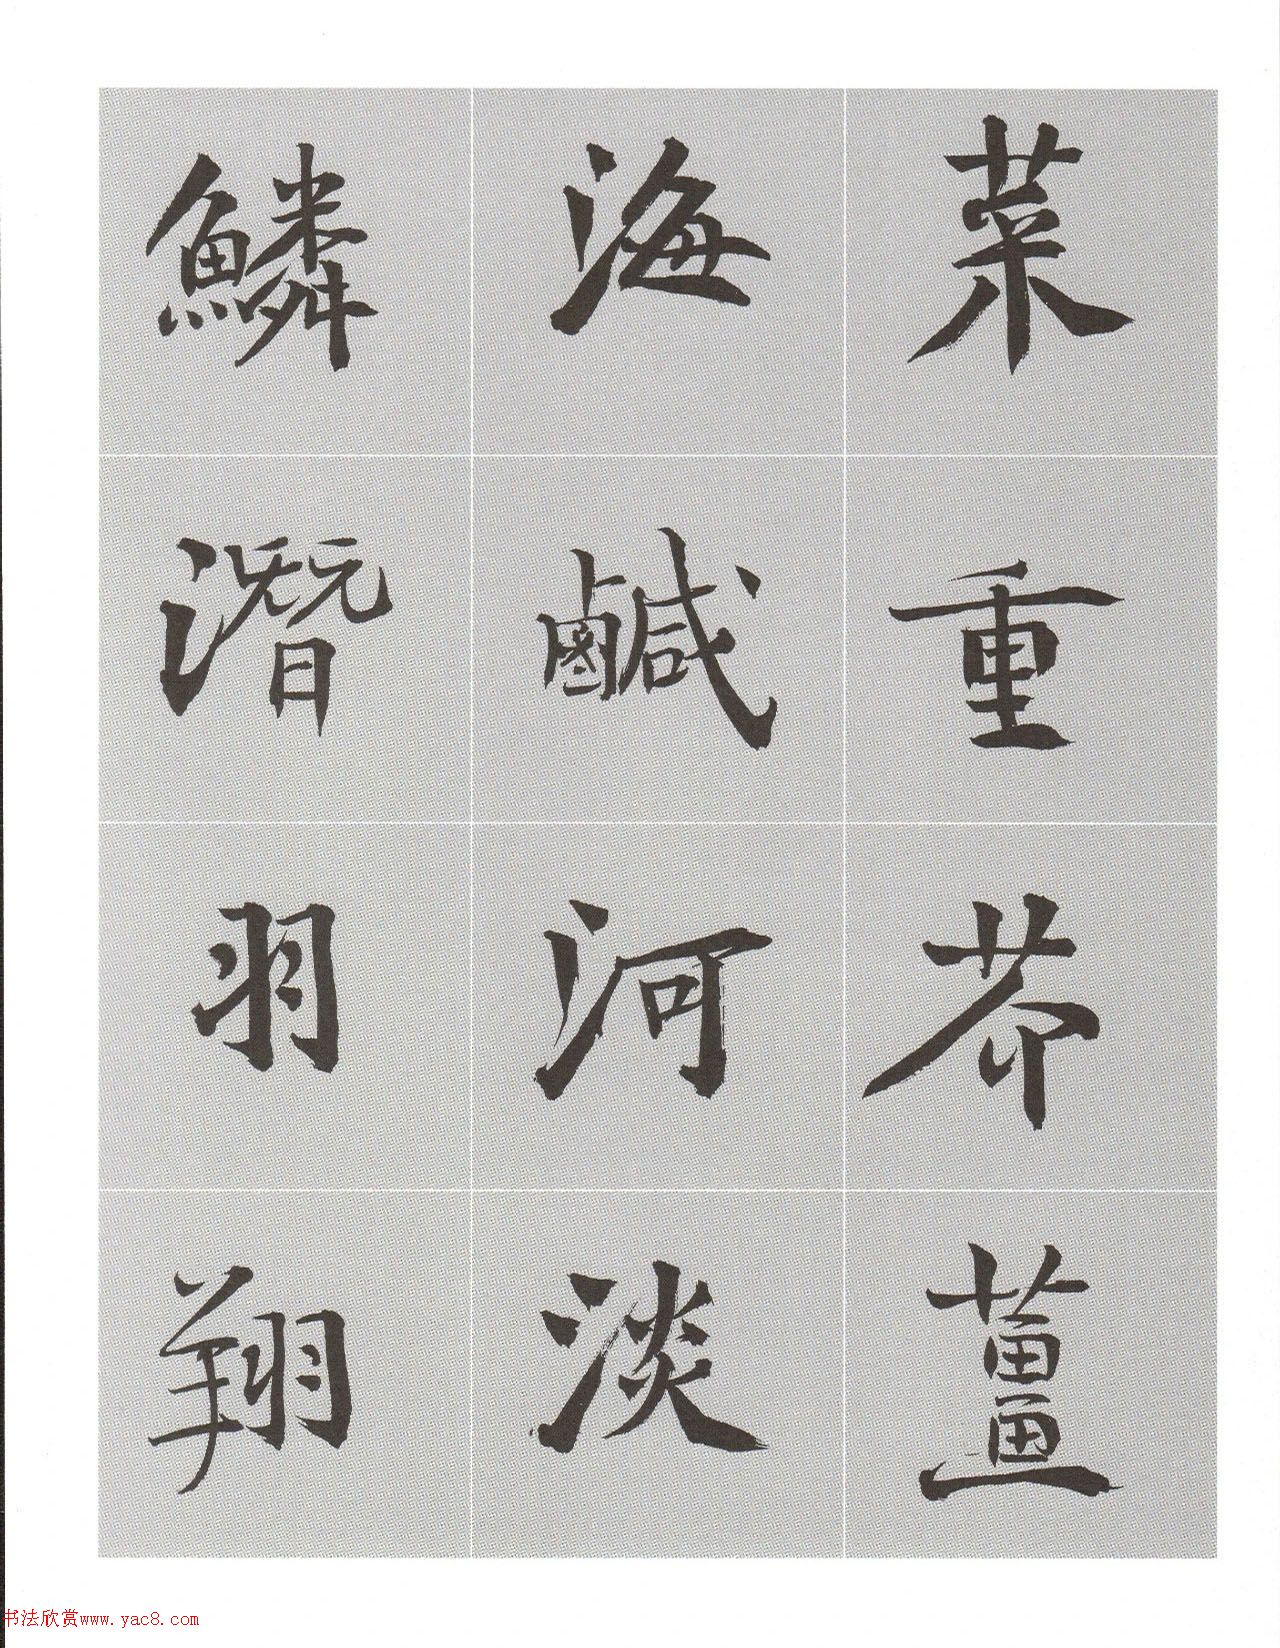 菜重芥薑
海鹹河淡
鱗潛羽翔
书法欣赏www.yac8.com